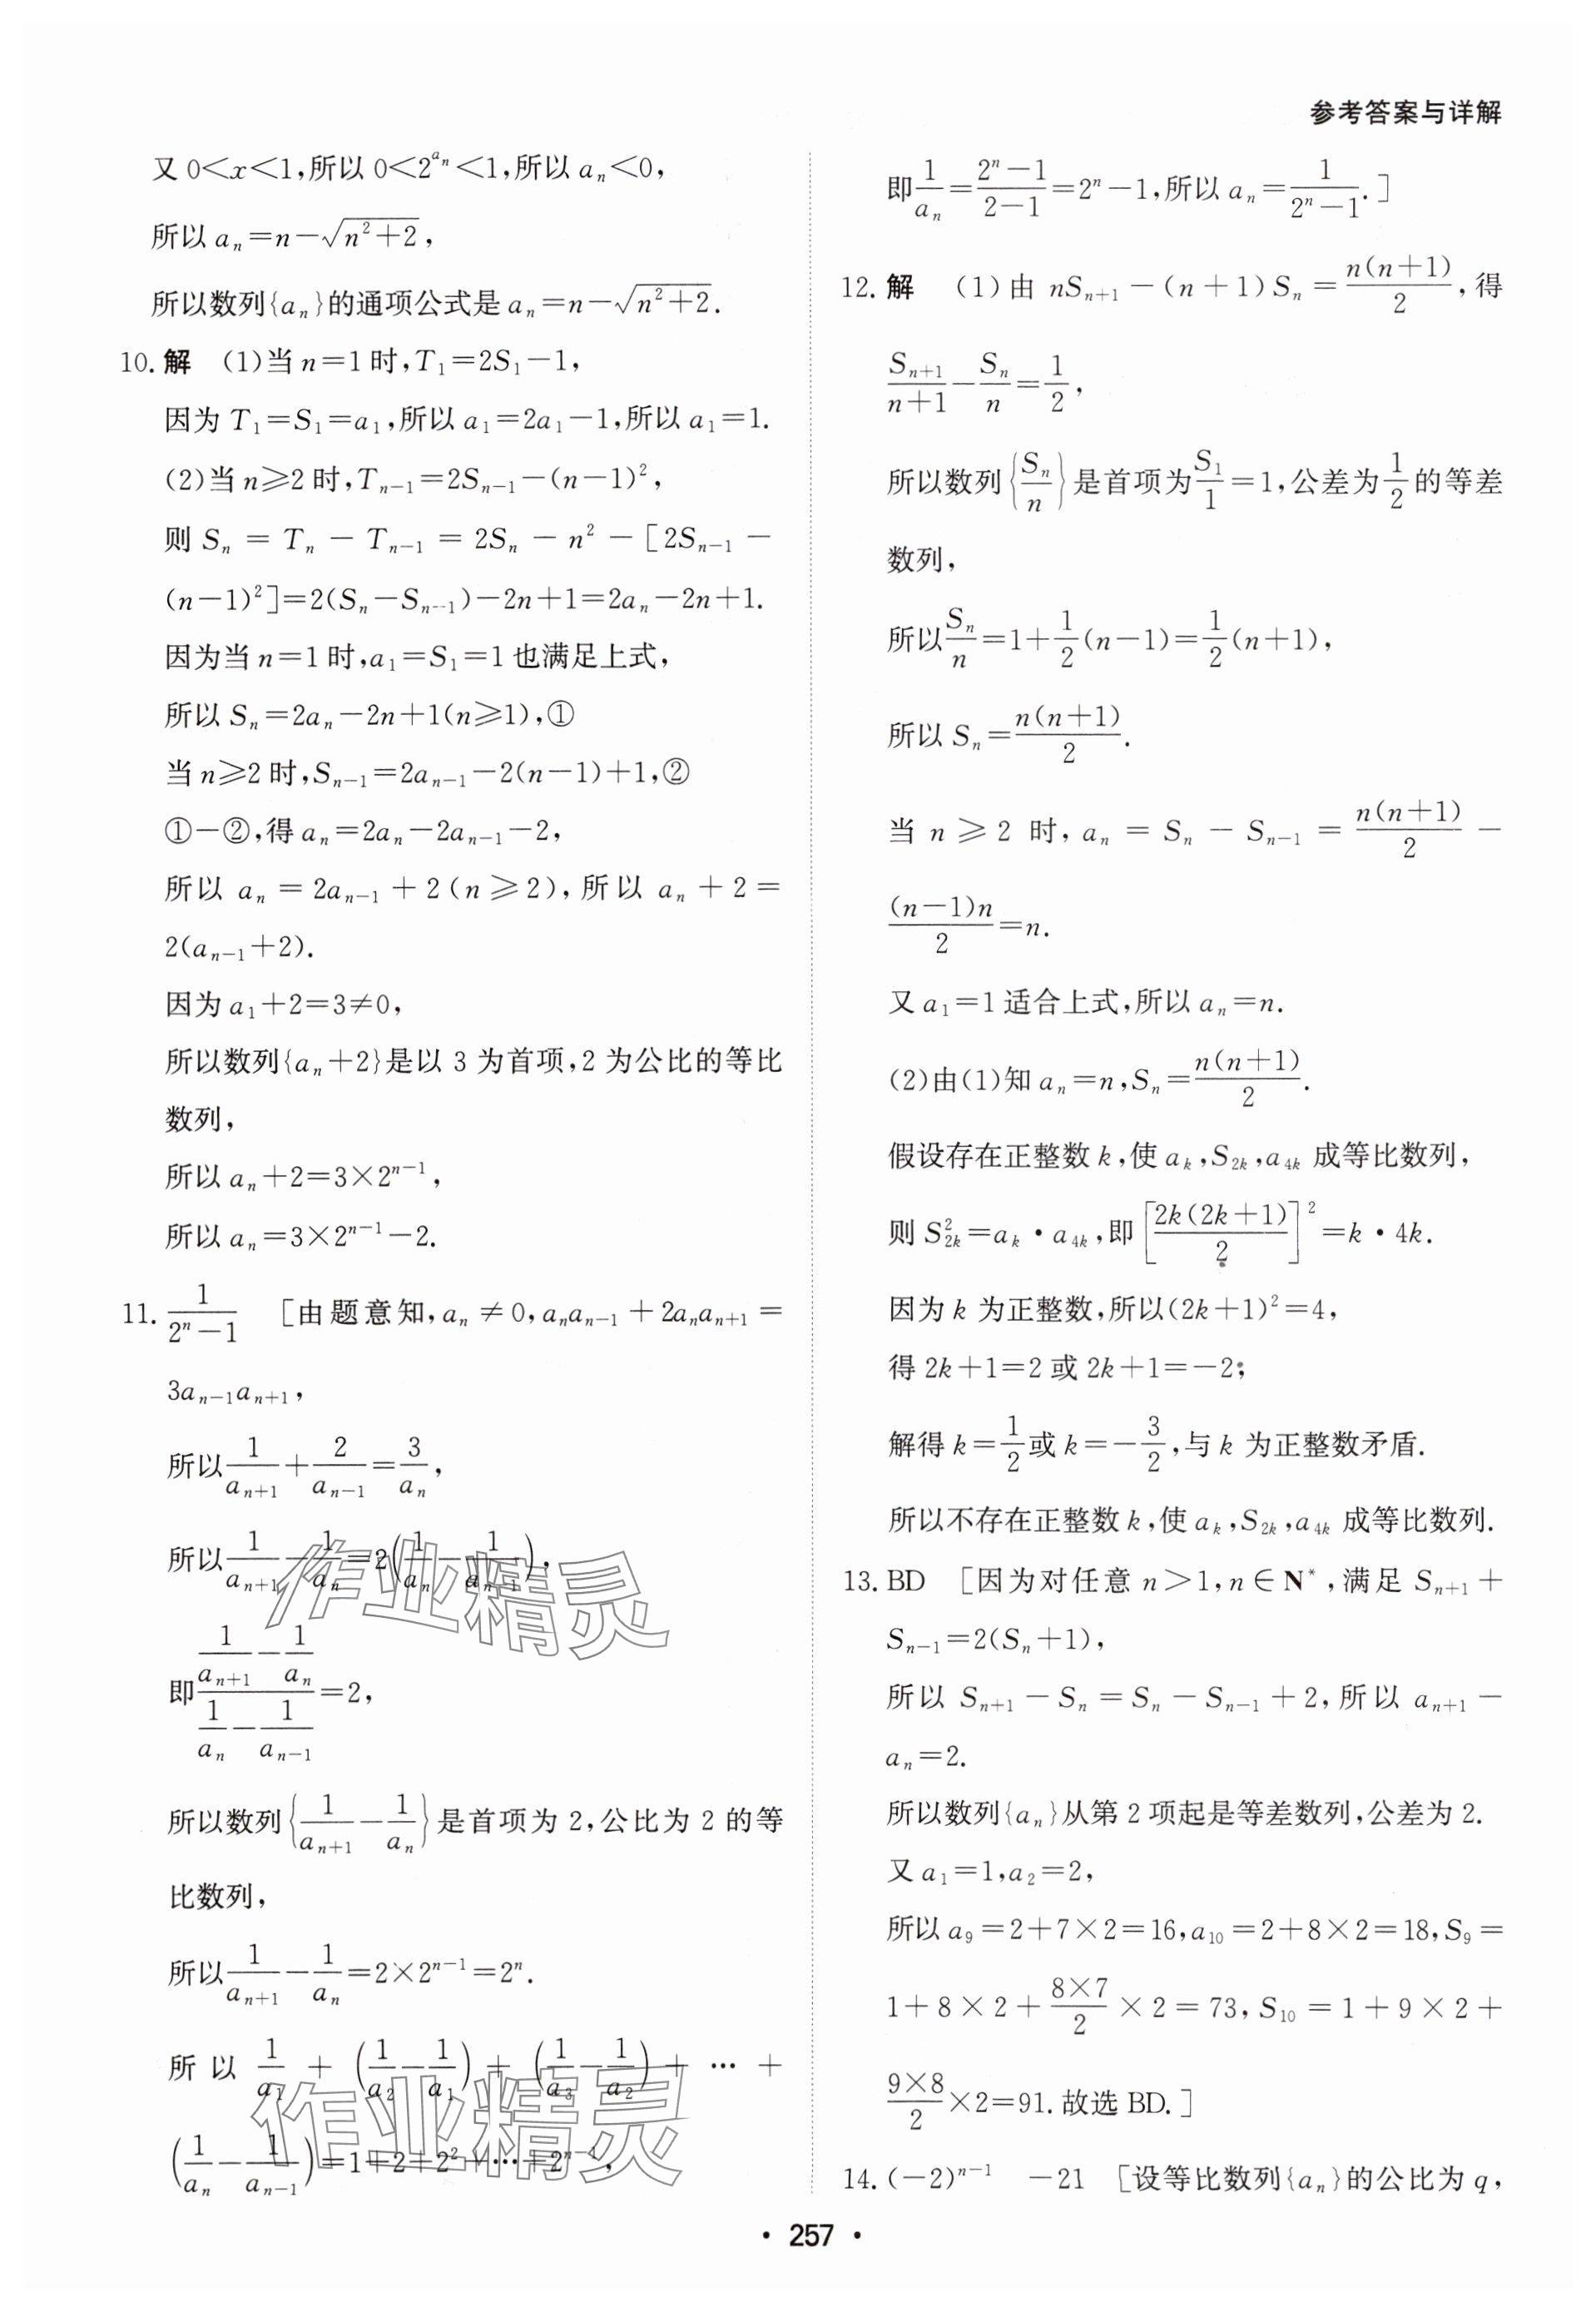 参考答案与详解
又 0<x<1,所以 0<2^{a_n}<1,所以 a_n<0,
所以 a_n=n-√(n²+2),
所以数列{a_n}的通项公式是 a_n=n-√(n²+2).
10. 解 (1)当 n=1 时,T_1=2S_1-1,
因为 T_1=S_1=a_1,所以 a_1=2a_1-1,所以 a_1=1.
(2)当 n≥2 时,T_{n-1}=2S_{n-1}-(n-1)²,
则 S_n = T_n - T_{n-1} = 2S_n - n² - [2S_{n-1} -
(n-1)²]=2(S_n-S_{n-1})-2n+1=2a_n-2n+1.
因为当 n=1 时,a_1=S_1=1 也满足上式,
所以 S_n=2a_n-2n+1(n≥1),①
当 n≥2 时,S_{n-1}=2a_{n-1}-2(n-1)+1,②
①-②,得 a_n=2a_n-2a_{n-1}-2,
所以 a_n = 2a_{n-1} + 2(n ≥ 2),所以 a_n + 2 =
2(a_{n-1}+2).
因为 a_1+2=3≠0,
所以数列{a_n+2}是以 3 为首项,2 为公比的等比
数列,
所以 a_n+2=3×2^{n-1},
所以 a_n=3×2^{n-1}-2.
11. 1/(2^n-1) [由题意知,a_n ≠ 0,a_na_{n-1} + 2a_na_{n+1} =
3a_{n-1}a_{n+1},
所以 1/a_{n+1} + 2/a_{n-1} = 3/a_n,
所以 1/a_{n+1} - 1/a_n = 2(1/a_n - 1/a_{n-1}),
即 (1/a_{n+1} - 1/a_n)/(1/a_n - 1/a_{n-1}) = 2,
所以数列{1/a_{n+1} - 1/a_n}是首项为 2,公比为 2 的等
比数列,
所以 1/a_{n+1} - 1/a_n = 2×2^{n-1}=2^n.
所以 1/a_1 + (1/a_2 - 1/a_1) + (1/a_3 - 1/a_2) + … +
(1/a_n - 1/a_{n-1}) = 1+2+2²+…+2^{n-1},
即 1/a_n = (2^n-1)/(2-1) = 2^n-1,所以 a_n = 1/(2^n-1).]
12. 解 (1)由 nS_{n+1} - (n+1)S_n = n(n+1)/2,得
S_{n+1}/(n+1) - S_n/n = 1/2,
所以数列{S_n/n}是首项为 S_1/1=1,公差为 1/2 的等差
数列,
所以 S_n/n = 1+1/2(n-1) = 1/2(n+1),
所以 S_n = n(n+1)/2.
当 n ≥ 2 时, a_n = S_n - S_{n-1} = n(n+1)/2 -
(n-1)n/2 = n.
又 a_1=1 适合上式,所以 a_n=n.
(2)由(1)知 a_n=n,S_n = n(n+1)/2.
假设存在正整数 k,使 a_k,S_{2k},a_{4k} 成等比数列,
则 S²_{2k}=a_k·a_{4k},即 [2k(2k+1)/2]²=k·4k.
因为 k 为正整数,所以(2k+1)²=4,
得 2k+1=2 或 2k+1=-2;
解得 k=1/2 或 k=-3/2,与 k 为正整数矛盾.
所以不存在正整数 k,使 a_k,S_{2k},a_{4k} 成等比数列.
13. BD [因为对任意 n>1,n∈N*,满足 S_{n+1}+
S_{n-1}=2(S_n+1),
所以 S_{n+1} - S_n = S_n - S_{n-1} + 2,所以 a_{n+1} -
a_n=2.
所以数列{a_n}从第 2 项起是等差数列,公差为 2.
又 a_1=1,a_2=2,
所以 a_9=2+7×2=16,a_{10}=2+8×2=18,S_9=
1+8×2+(8×7)/2×2=73,S_{10}=1+9×2+
(9×8)/2×2=91.故选 BD.]
14. (-2)^{n-1} -21 [设等比数列{a_n}的公比为 q,
作业精灵
作业精灵
· 257 ·